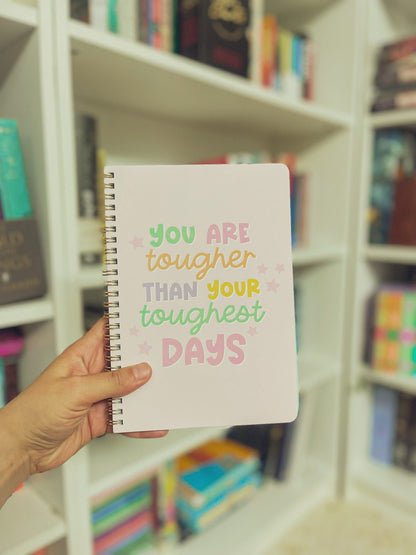 YOU ARE
tougher
THAN YOUR
toughest
DAYS